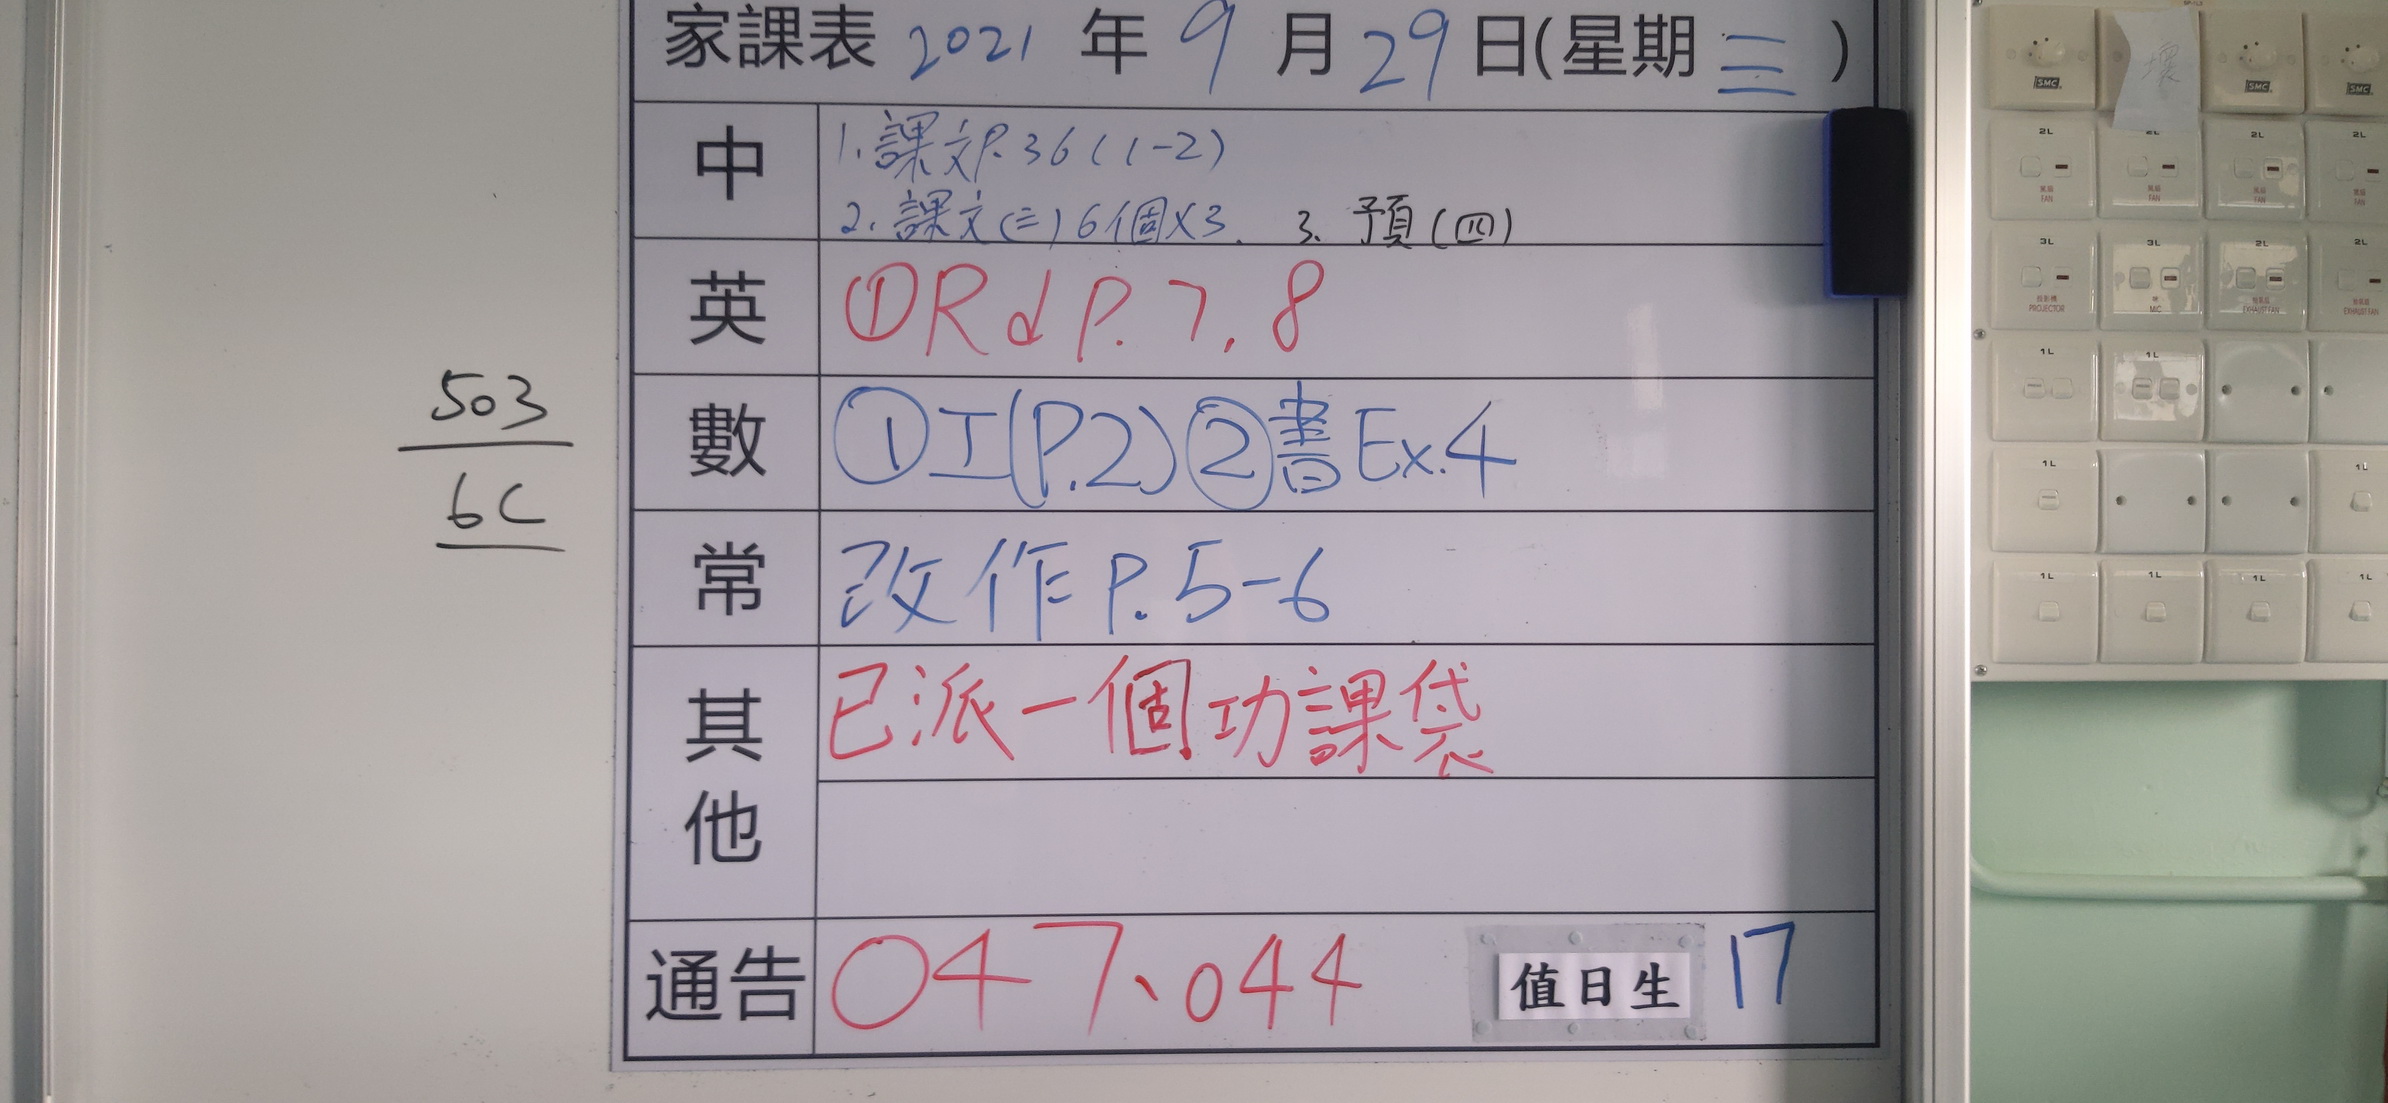 家課表 2021 年 9 月 29 日(星期 三 )
中
1. 課文P.36 (1-2)
2. 課文(三) 6個X3. 3. 預(四)
英
①Rd P.7,8
數
①工(P.2) ②書Ex.4
常
改作P.5-6
其他
已派一個功課袋
通告
047、044
值日生 17
503
6C
SMC 壞 SMC SMC
2L 2L 2L 2L
風扇 FAN 風扇 FAN 風扇 FAN 風扇 FAN
3L 3L 2L 2L
投影機 PROJECTOR MIC 抽氣扇 EXHAUST FAN EXHAUST FAN
1L 1L
1L 1L
1L 1L 1L 1L